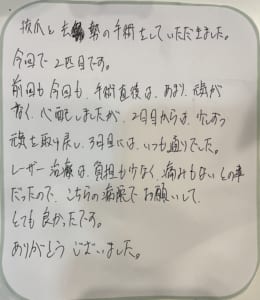 抜爪と去勢の手術をしていただきました。
今回で2匹目です。
前回も今回も、手術直後は、あまり元気が
なく、心配しましたが、2日目からは、少しずつ
元気を取り戻し、3日目には、いつも通りでした。
レーザー治療は、負担も少なく、痛みもないとの事
だったので、こちらの病院でお願いして、
とても良かったです。
ありがとうございました。